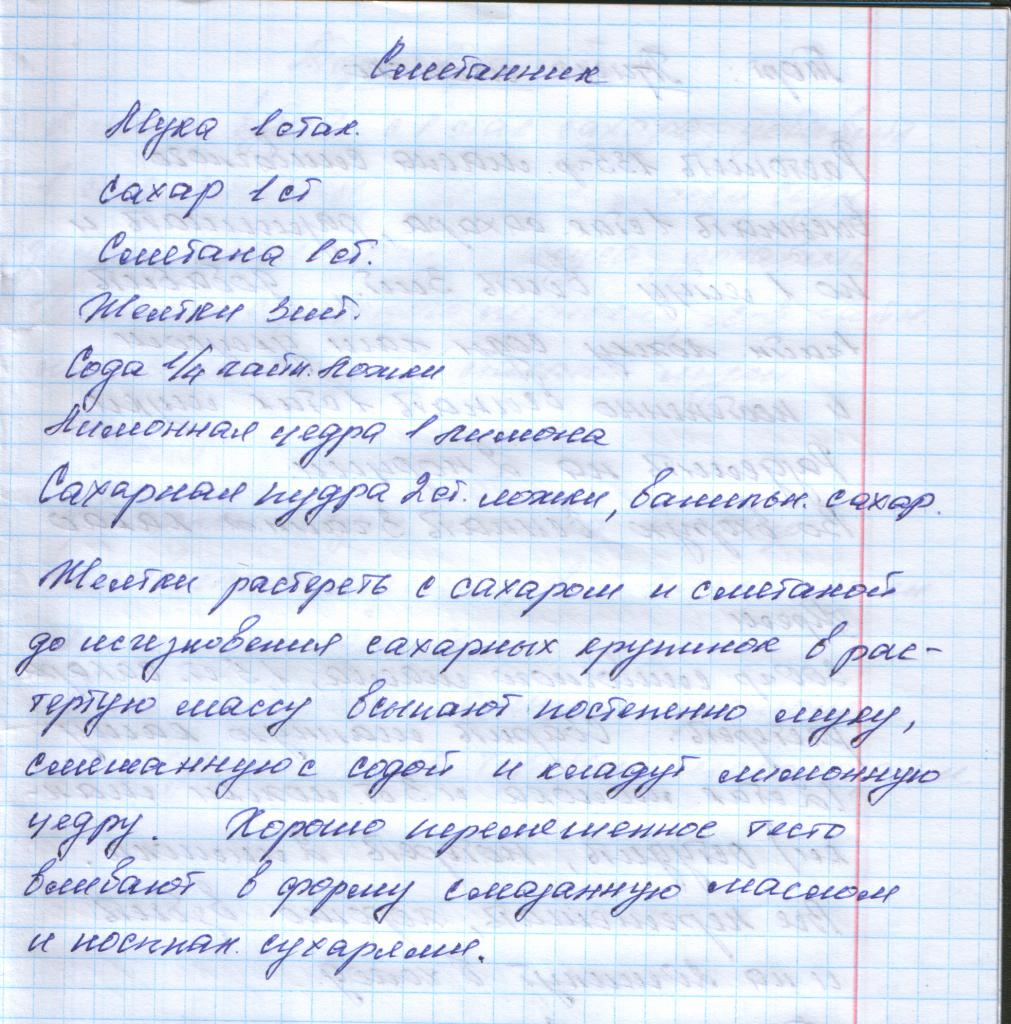 Сметанник
Мука 1 стак.
Сахар 1 ст
Сметана 1 ст.
Желтки 3 шт.
Сода 1/4 чайн. ложки
Лимонная цедра 1 лимона
Сахарная пудра 2 ст. ложки, ванильн. сахар.
Желтки растереть с сахаром и сметаной
до исчезновения сахарных крупинок в рас-
тертую массу всыпают постепенно муку,
смешанную с содой и кладут лимонную
цедру. Хорошо перемешенное тесто
вливают в форму смазанную маслом
и посыпан. сухарями.